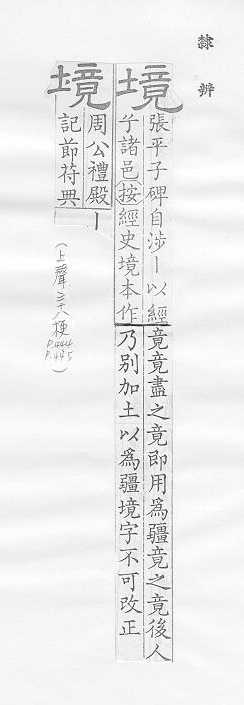 隸辨
境 張平子碑自涉丨以經竟竟盡之竟即用爲疆竟之竟後人
于諸邑按經史境本作乃別加土以爲疆境字不可改正
境 周公禮殿丨
記節苻典
(上聲三十八梗
P.444
P.445)